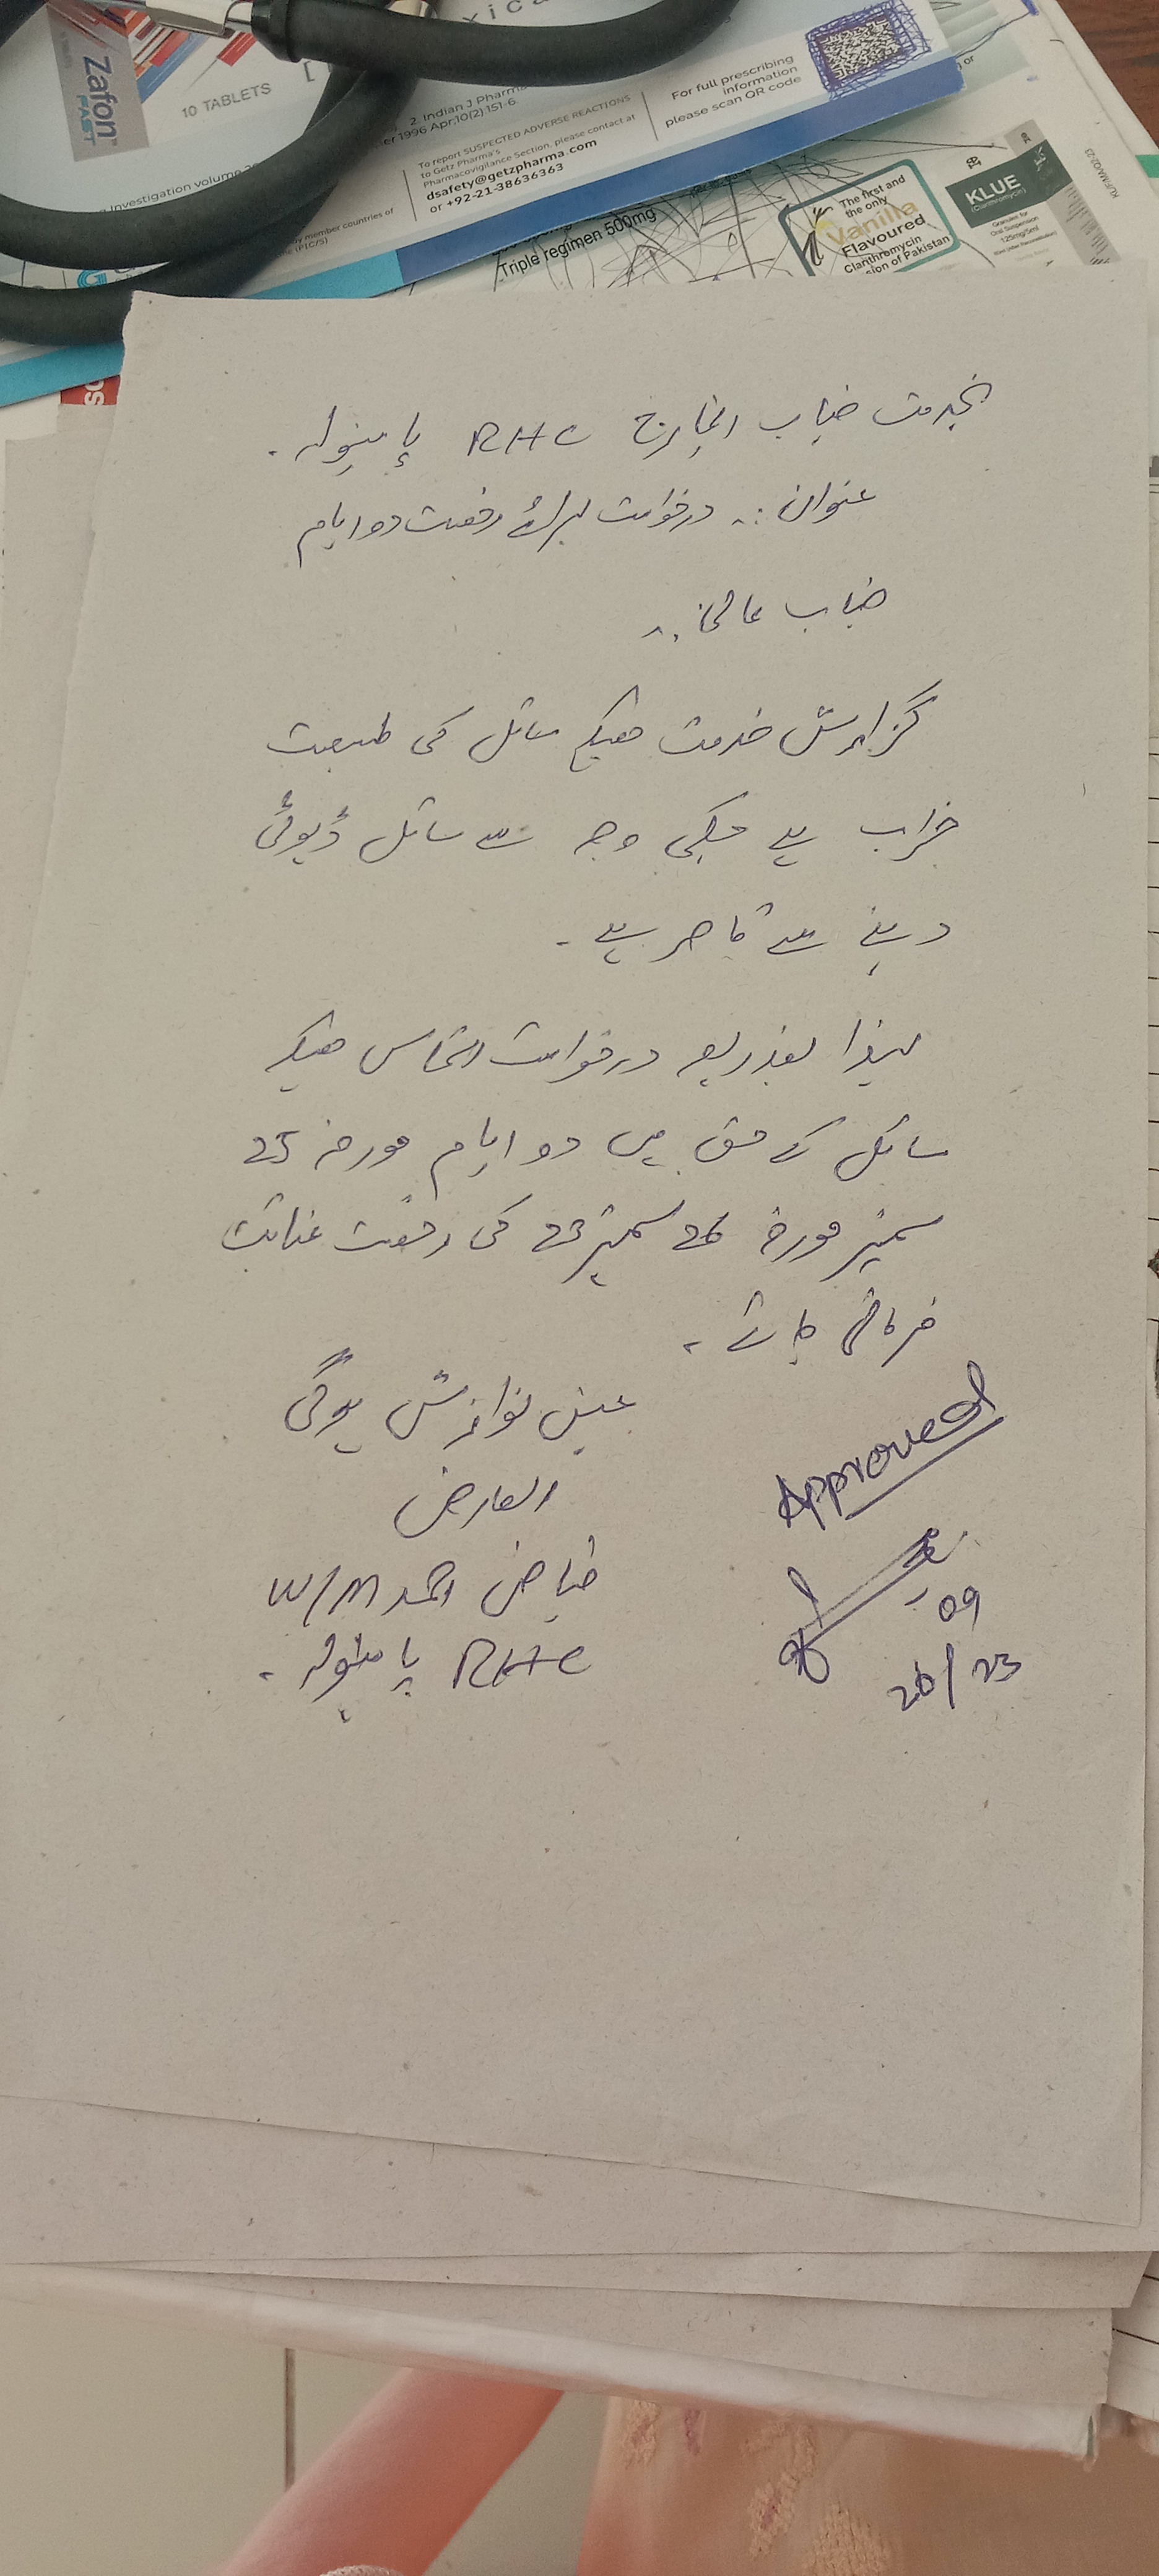 Zafon
FAST
10 TABLETS
2. Indian J Pharma
1996 Apr;10(2):151-6.
To report SUSPECTED ADVERSE REACTIONS
to Getz Pharma's
Pharmacovigilance Section, please contact at
dsafety@getzpharma.com
or +92-21-38636363
For full prescribing
information
please scan QR code
Investigation volume
by member countries of
(PIC/S)
Triple regimen 500mg
The first and
the only
Vanilla
Flavoured
Clarithromycin
sion of Pakistan
KLUE
(Clarithromycin)
Granules for
Oral Suspension
125mg/5ml
بخدمت جناب انچارج RHC پامنولہ۔
عنوان :۔ درخواست برائے رخصت دو ایام
جناب عالی :۔
گزارش خدمت ھیکہ سائل کی طبیعت
خراب ہے جسکی وجہ سے سائل ڈیوٹی
دینے سے قاصر ہے۔
لہذا بذریعہ درخواست التماس ھیکہ
سائل کے حق میں دو ایام مورخہ 25
ستمبر مورخہ 26 ستمبر 23 کی رخصت عنایت
فرمائی جائے۔
عین نوازش ہوگی
العارض
فیاض احمد W/M
RHC پامنولہ۔
Approved
26/09-23